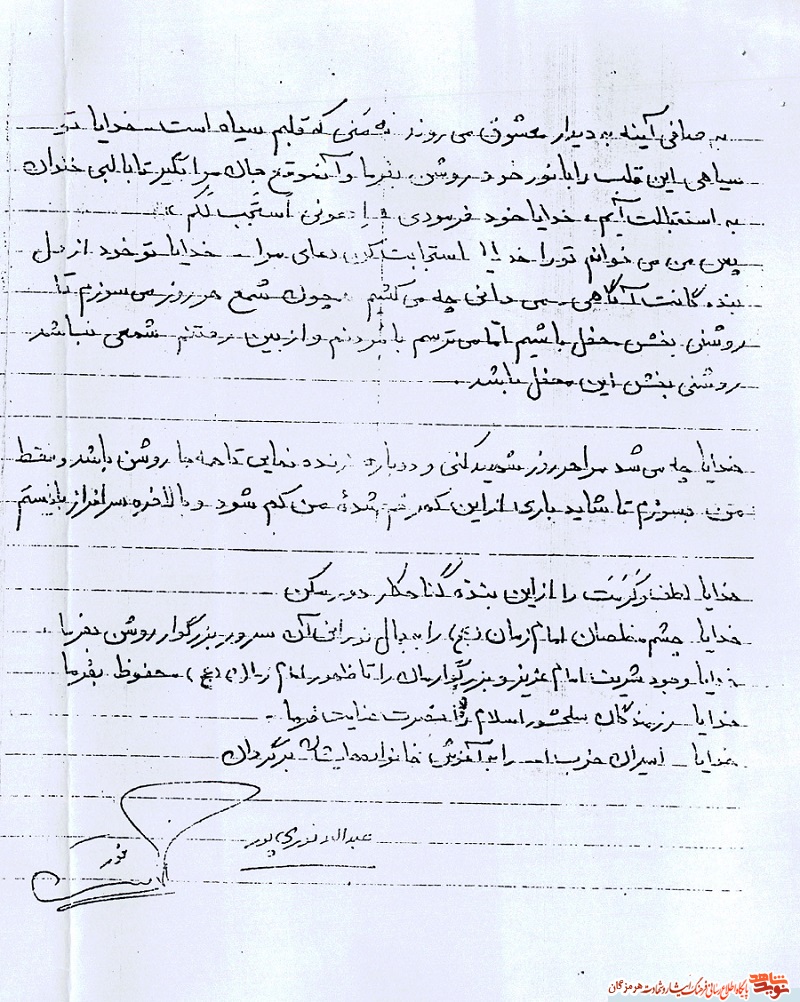 به صافی آینه به دیدار معشوق می روند نه منی که قلبم سیاه است خدایا تو
سیاهی این قلب را با نور خود روشن بفرما و آنموقع جان مرا بگیر تا با لبی خندان
به استقبالت آیم، خدایا خود فرمودی «ادعونی اَستَجِب لَکُم»
پس من می خوانم تو را خدایا استجابت کن دعای مرا خدایا تو خود از دل
بنده گانت آگاهی می دانی چه می کشیم چون شمع هر روز می سوزم تا
روشنی بخش محفل باشیم اما می ترسم با مُردنم و از بین رفتنم شمعی نباشد
روشنی بخش این محفل باشد.
خدایا چه می شد مرا هر روز شهید کنی و دوباره زنده نمایی تا همه جا روشن باشد و فقط
من بسوزم تا شاید باری از این کمر خم شدهٔ من کم شود و بالاخره سرافراز بایستم
خدایا لطف و کَرَمَت را از این بنده گناهکار دور مکن
خدایا چشم مخلصان امام زمان (عج) را به جمال نورانی آن سرور بزرگوار روشن بفرما.
خدایا وجود شریف امام عزیز و بزرگوارمان را تا ظهور امام زمان (عج) محفوظ بفرما
خدایا رزمندگان سلحشور اسلام را نصرت عنایت فرما.
خدایا اسیران حزب ا... را به آغوش خانواده ایشان برگردان
عبدالله نوری پور
نوید شاهد
پایگاه اطلاع رسانی فرهنگ ایثار و شهادت هرمزگان